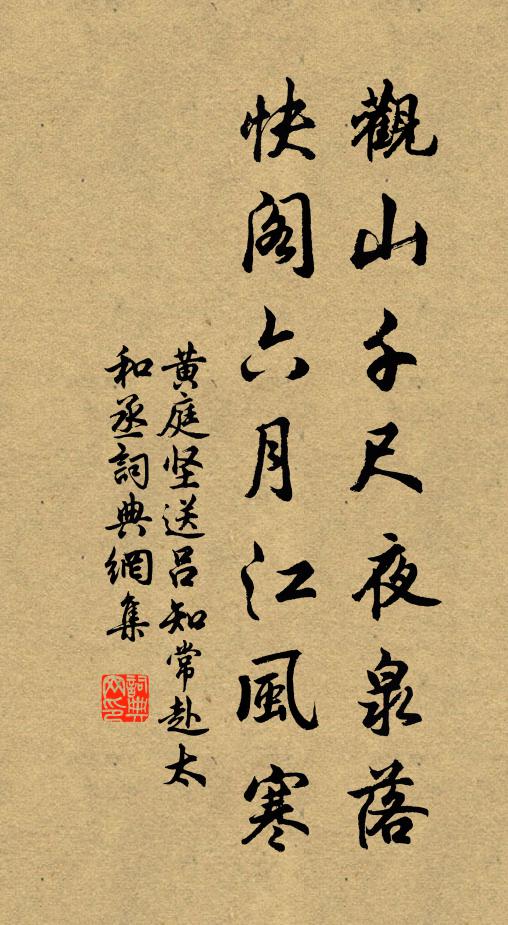 觀山千尺夜泉落
快阁六月江風寒
黄庭坚送吕知常赴太
和丞詞典網集
詞典网印